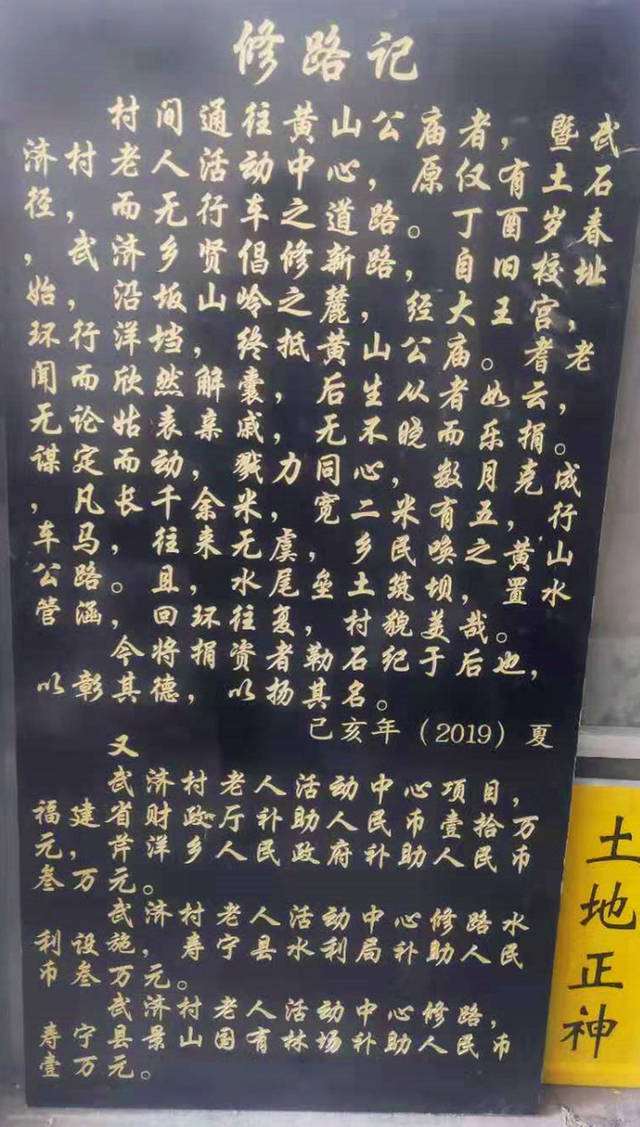 修路记
村间通往黄山公庙者，暨武
济村老人活动中心，原仅有土石
径，而无行车之道路。丁酉岁春
，武济乡贤倡修新路，自旧校址
始，沿坂山岭之麓，经大王宫，
环行洋垱，终抵黄山公庙。耆老
闻而欣然解囊，后生从者如云，
无论姑表亲戚，无不晓而乐捐。
谋定而动，戮力同心，数月克成
，凡长千余米，宽二米有五，行
车马，往来无虞，乡民唤之黄山
公路。且水尾垒土筑坝，置水
管涵，回环往复，村貌美哉。
今将捐资者勒石纪于后也，
以彰其德，以扬其名。
己亥年（2019）夏
又
武济村老人活动中心项目，
福建省财政厅补助人民币壹拾万
元，芹洋乡人民政府补助人民币
叁万元。
武济村老人活动中心修路水
利设施，寿宁县水利局补助人民
币叁万元。
武济村老人活动中心修路，
寿宁县景山国有林场补助人民币
壹万元。
土地正神